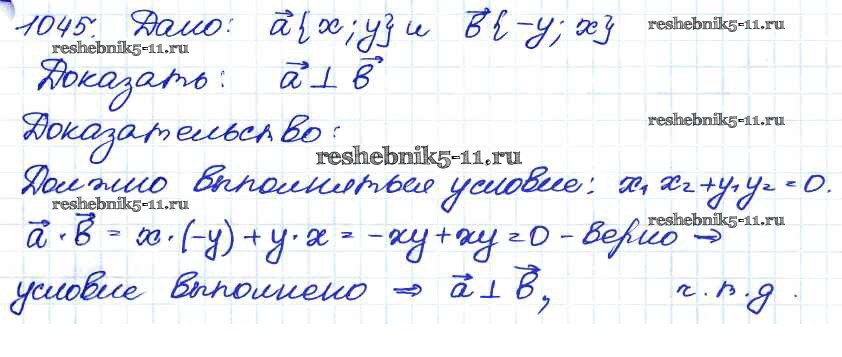 1045. Дано: a⃗{x; y} и b⃗{-y; x}
reshebnik5-11.ru reshebnik5-11.ru
Доказать: a⃗ ⊥ b⃗
Доказательство: reshebnik5-11.ru
reshebnik5-11.ru
Должно выполняться условие: x₁ x₂ + y₁ y₂ = 0.
reshebnik5-11.ru reshebnik5-11.ru
a⃗ · b⃗ = x · (-y) + y · x = -xy + xy = 0 - верно ⇒
условие выполнено ⇒ a⃗ ⊥ b⃗, ч.т.д.